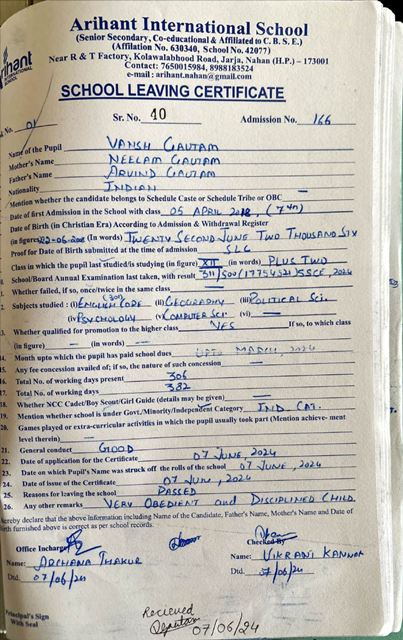 Arihant International School
(Senior Secondary, Co-educational & Affiliated to C. B. S. E.)
(Affilation No. 630340, School No. 42077)
Near R & T Factory, Kolawalabhood Road, Jarja, Nahan (H.P.) - 173001
Contact: 7650015984, 8988183524
e-mail : arihant.nahan@gmail.com
SCHOOL LEAVING CERTIFICATE
No. 01 Sr. No. 40 Admission No. 166
Name of the Pupil VANSH GAUTAM
Mother's Name NEELAM GAUTAM
Father's Name ARVIND GAUTAM
Nationality INDIAN
Mention whether the candidate belongs to Schedule Caste or Schedule Tribe or OBC —
Date of first Admission in the School with class 05 APRIL 2018, (7th)
Date of Birth (in Christian Era) According to Admission & Withdrawal Register
(in figure) 22-06-2006 (In words) TWENTY SECOND JUNE TWO THOUSAND SIX
Proof for Date of Birth submitted at the time of admission SLC
Class in which the pupil last studied/is studying (in figure) XII (in words) PLUS TWO
School/Board Annual Examination last taken, with result 311/500 (17754321) SSCE, 2024
Whether failed, if so, once/twice in the same class —
Subjects studied : (i) ENGLISH CORE (301) (ii) GEOGRAPHY (iii) POLITICAL Sci.
(iv) PSYCHOLOGY (v) COMPUTER SCI. (vi) —
13. Whether qualified for promotion to the higher class YES If so, to which class
(in figure) — (in words) —
14. Month upto which the pupil has paid school dues UPTO MARCH, 2024
15. Any fee concession availed of; if so, the nature of such concession —
16. Total No. of working days present 306
17. Total No. of working days 382
18. Whether NCC Cadet/Boy Scout/Girl Guide (details may be given) —
19. Mention whether school is under Govt./Minority/Independent Category IND. CAT.
20. Games played or extra-curricular activities in which the pupil usually took part (Mention achieve- ment
level therein) —
21. General conduct GOOD
22. Date of application of the Certificate 07 JUNE, 2024
23. Date on which Pupil's Name was struck off the rolls of the school 07 JUNE, 2024
24. Date of issue of the Certificate 07 JUNE, 2024
25. Reasons for leaving the school PASSED
26. Any other remarks VERY OBEDIENT and DISCIPLINED CHILD.
hereby declare that the above information including Name of the Candidate, Father's Name, Mother's Name and Date of
Birth furnished above is correct as per school records.
Office Incharge Checked By
Name: ARCHANA THAKUR Name: VIKRANT KANWAR
Dtd. 07/06/24 Dtd. 7/06/24
Principal's Sign
With Seal
Recieved
07/06/24